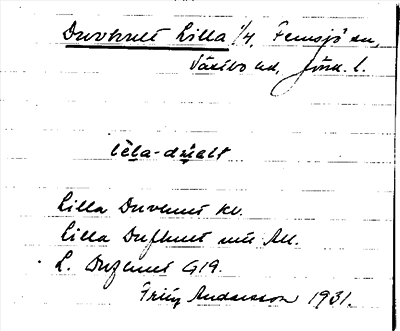 Duvhult Lilla 1/4, Femsjö sn,
Västbo hd, Jönk. l.
lèla-dùalt
Lilla Duvhult kb.
Lilla Dufhult
L. Dufhult G19.
Fritz Andersson 1931.